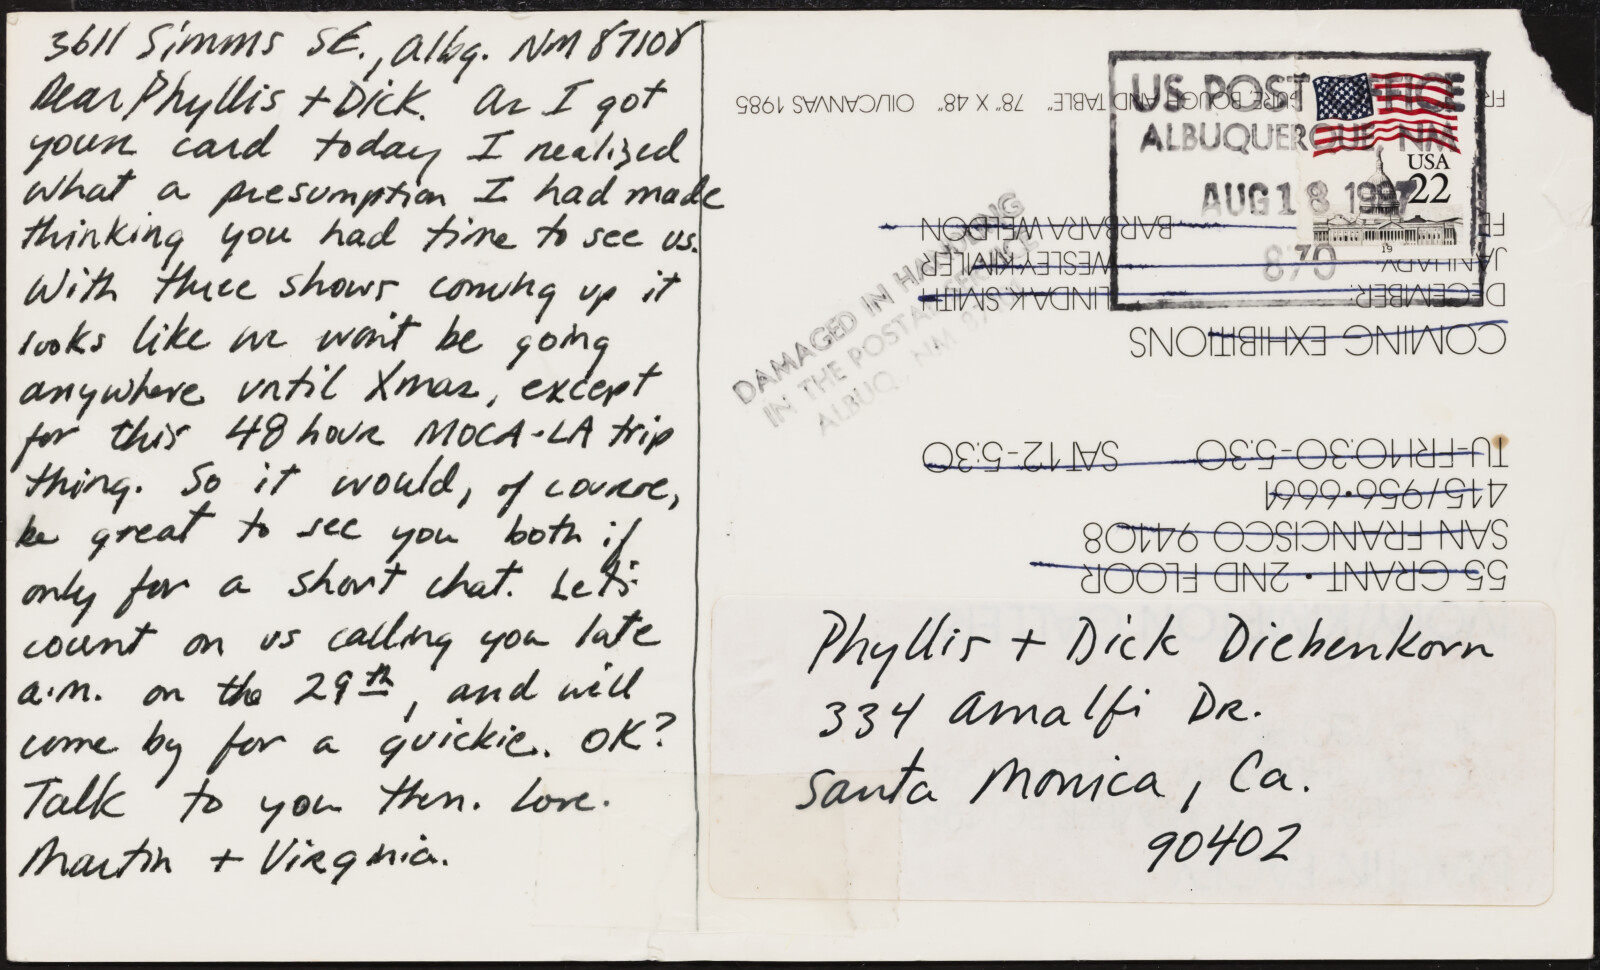 3611 Simms SE., Albq. NM 87108
Dear Phyllis + Dick. As I got
your card today I realized
what a presumption I had made
thinking you had time to see us.
With three shows coming up it
looks like we won't be going
anywhere until Xmas, except
for this 48 hour MOCA-LA trip
thing. So it would, of course,
be great to see you both if
only for a short chat. Let's
count on us calling you late
a.m. on the 29th, and will
come by for a quickie. OK?
Talk to you then. Love.
Martin + Virginia.
US POST OFFICE
ALBUQUERQUE NM
AUG 18 1987
870
USA
22
DAMAGED IN HANDLING
IN THE POSTAL SERVICE
ALBUQ., NM
BOUGH AND TABLE" 78" X 48" OIL/CANVAS 1985
BARBARA WELDON
JANUARY WESLEY KIMLER
DECEMBER LINDA K SMITH
COMING EXHIBITIONS
TU-FRI 10:30-5:30 SAT 12-5:30
415/956-6661
SAN FRANCISCO 94108
55 GRANT • 2ND FLOOR
Phyllis + Dick Diebenkorn
334 Amalfi Dr.
Santa Monica, Ca.
90402